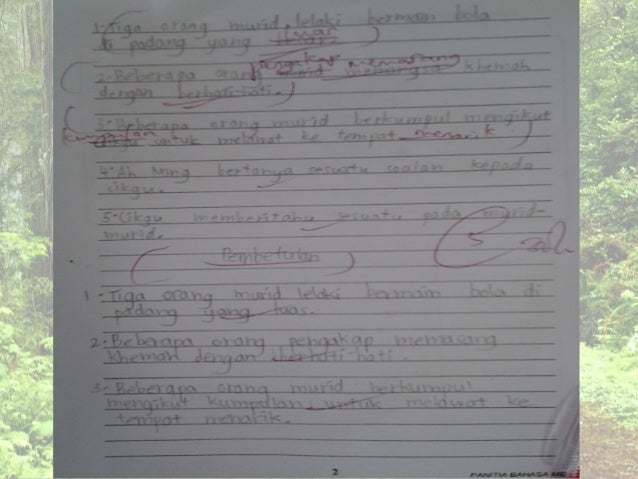 1. Tiga orang murid lelaki bermain bola
di padang yang luas
2. Beberapa orang pengakap memasang khemah
dengan berhati-hati.
3. Beberapa orang murid berkumpul mengikut
kumpulan untuk melawat ke tempat menarik
4. Ah Ming bertanya sesuatu soalan kepada
cikgu.
5. Cikgu memberitahu sesuatu pada murid-
murid.
Pembetulan
5
1. Tiga orang murid lelaki bermain bola di
padang yang luas.
2. Beberapa orang pengakap memasang
khemah dengan berhati-hati.
3. Beberapa orang murid berkumpul
mengikut kumpulan untuk melawat ke
tempat menarik.
2
PANITIA BAHASA ME